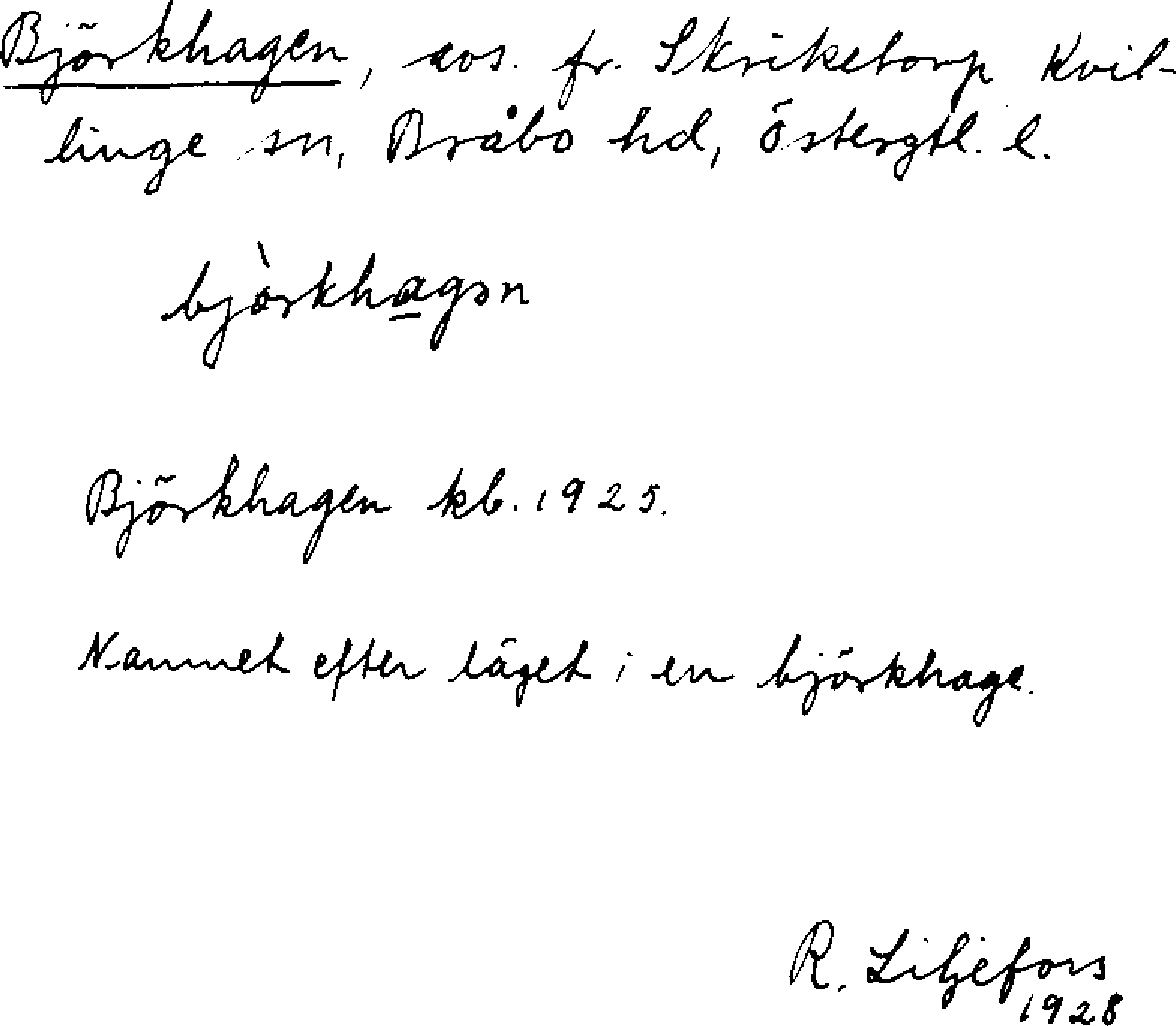 Björkhagen, avs. fr. Skriketorp Kvil-
linge sn, Bråbo hd, Östergtl. l.
bjö̀rkhagən
Björkhagen kb. 1925.
Namnet efter läget i en björkhage.
R. Liljefors
1928